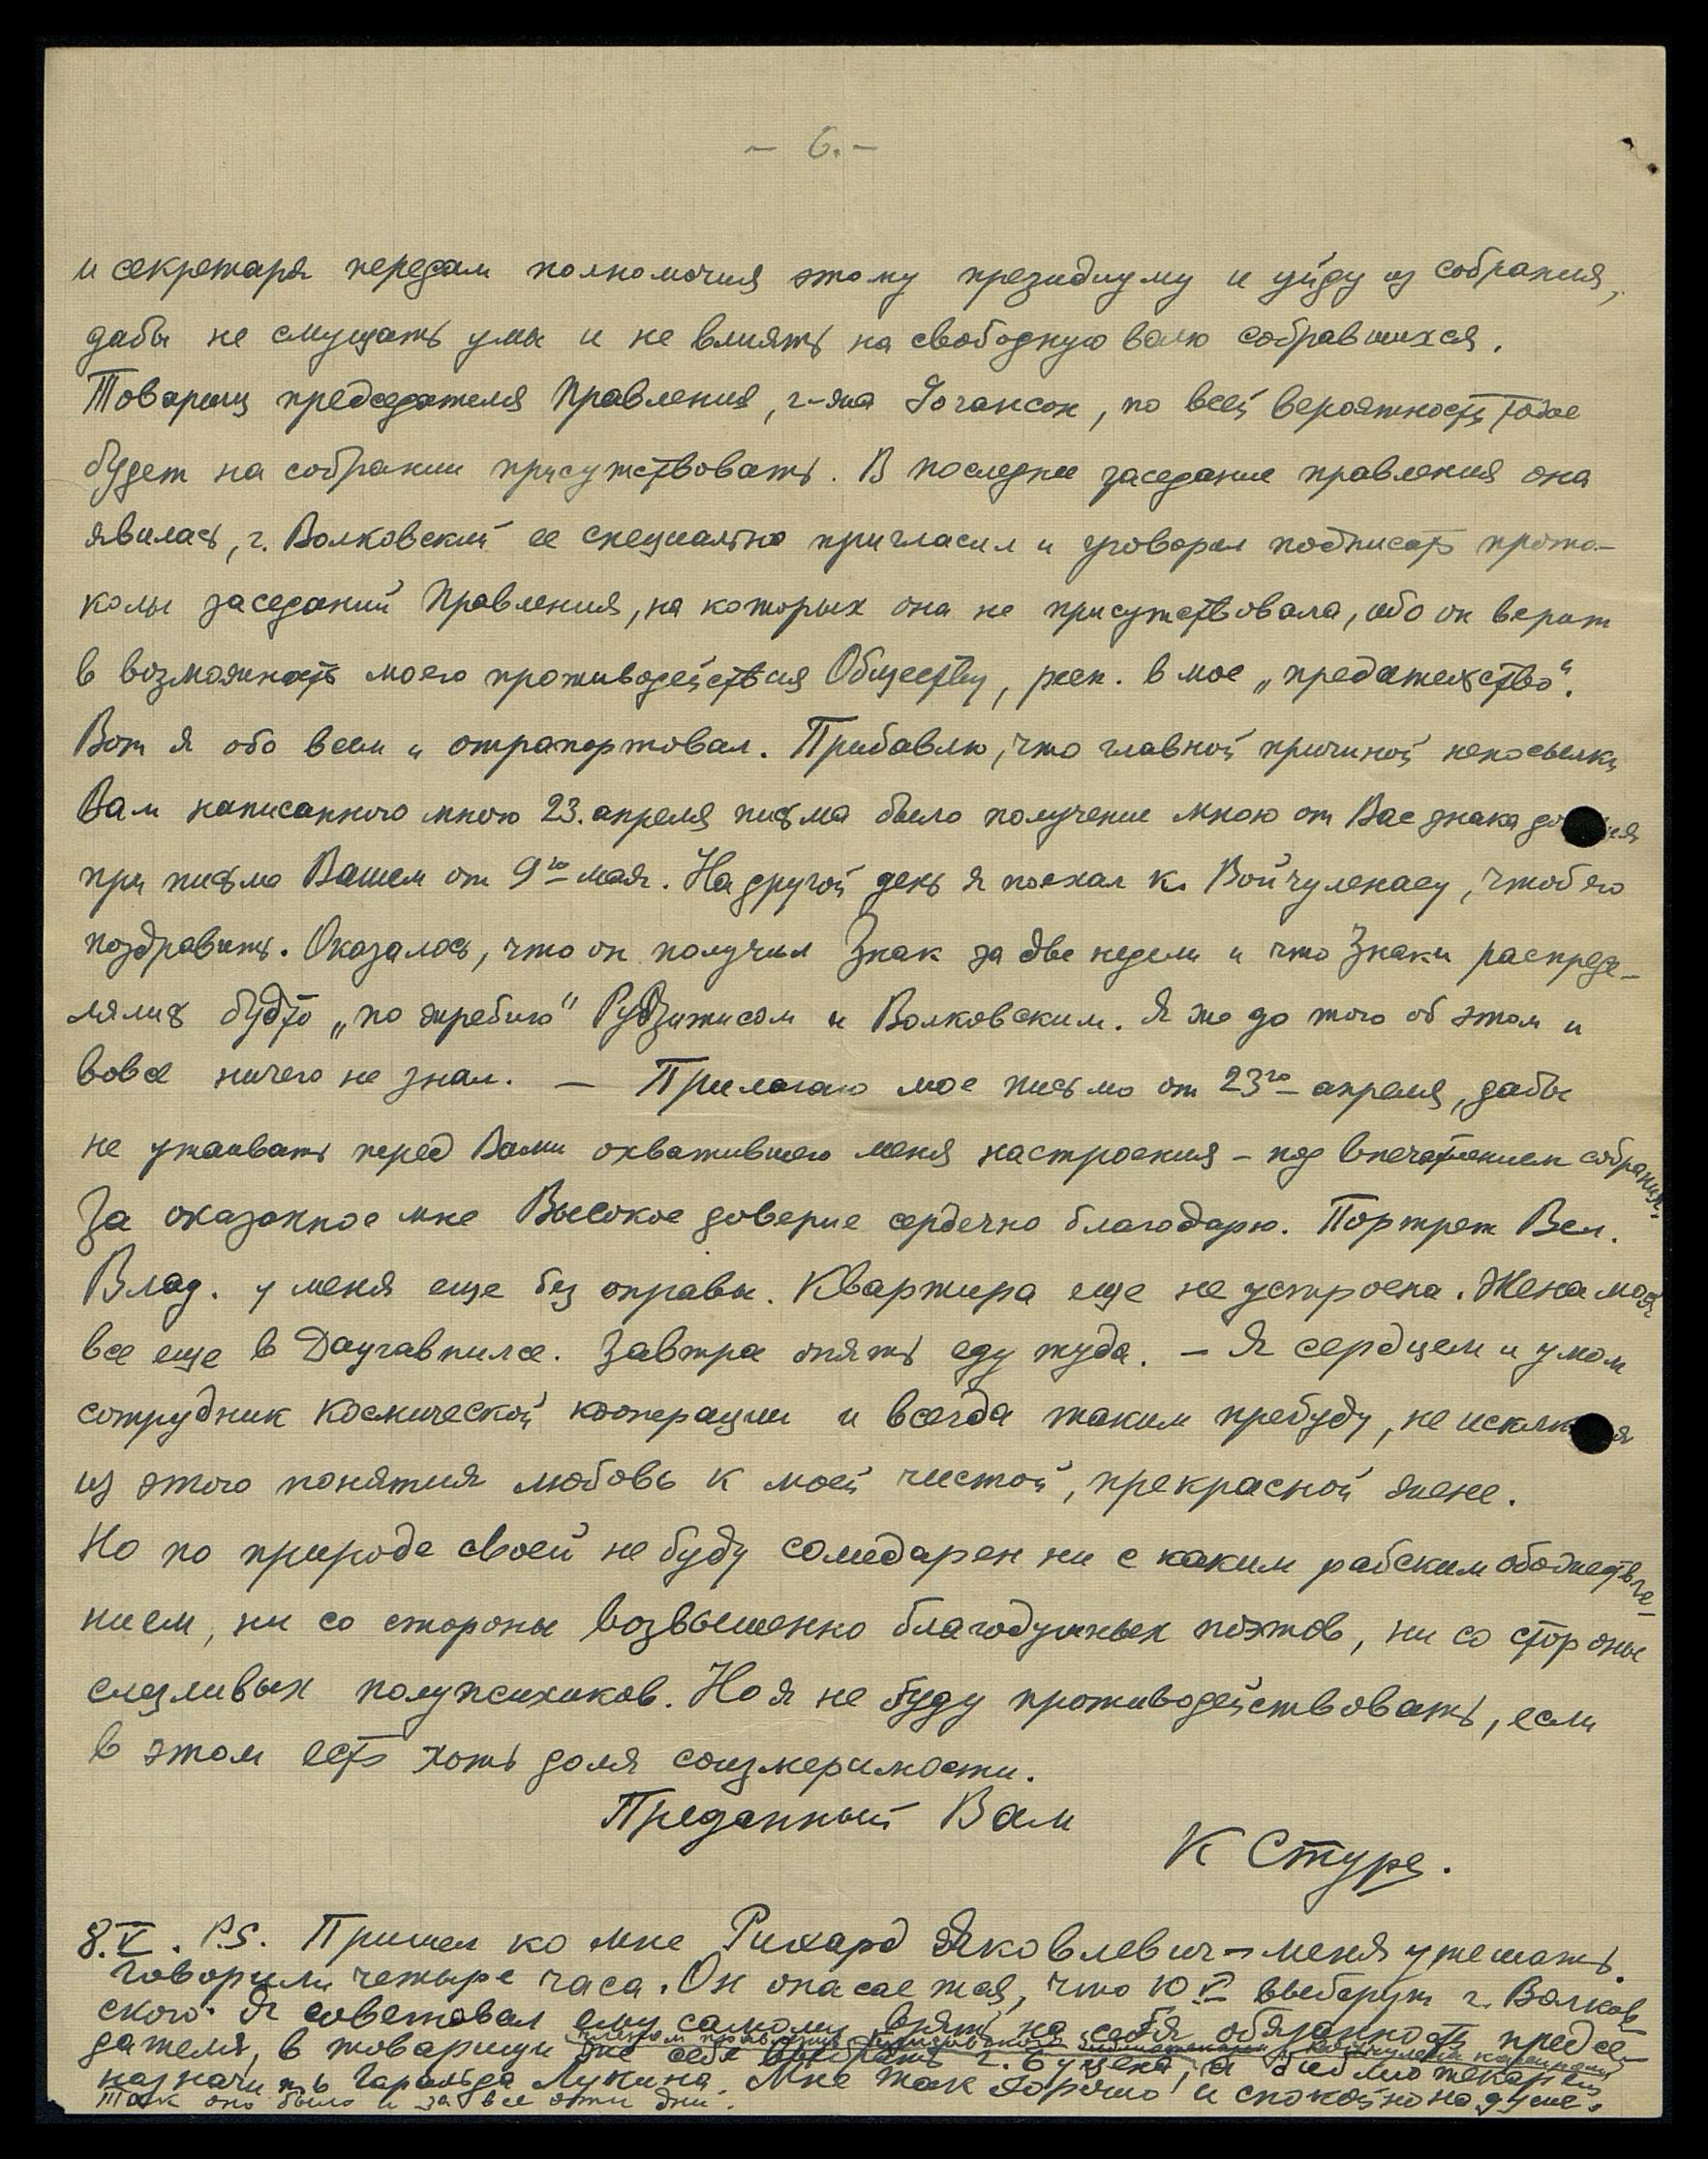 - 6. -
и секретаря передам полномочия этому президиуму и уйду из собрания,
дабы не смущать умы и не влиять на свободную волю собравшихся.
Товарищ председателя Правления, г-жа Иогансон, по всей вероятности тоже
будет на собрании присутствовать. В последнее заседание правления она
явилась, г. Волковский ее специально пригласил и уговорил подписать прото-
колы заседаний Правления, на которых она не присутствовала, ибо он верит
в возможность моего противодействия Обществу, реп. в мое „предательство“.
Вот я обо всем и отрапортовал. Прибавлю, что главной причиной непосылки
Вам написанного мною 23. апреля письма было получение мною от Вас знака до ия
при письме Вашем от 9го мая. На другой день я поехал к Войчуленасу, чтоб его
поздравить. Оказалось, что он получил Знак за две недели и что Знаки распреде-
лялись будто „по жребию“ Рудзитисом и Волковским. Я же до того об этом и
вовсе ничего не знал. — Прилагаю мое письмо от 23го апреля, дабы
не утаивать перед Вами охватившего меня настроения - под впечатлением собрания.
За оказанное мне Высокое доверие сердечно благодарю. Портрет Вел.
Влад. у меня еще без оправы. Квартира еще не устроена. Жена моя
все еще в Даугавпилсе. Завтра опять еду туда. - Я сердцем и умом
сотрудник космической кооперации и всегда таким пребуду, не исклю я
из этого понятия любовь к моей чистой, прекрасной жене.
Но по природе своей не буду солидарен ни с каким рабским обожествле-
нием, ни со стороны возвышенно благодушных поэтов, ни со стороны
слезливых полупсихиков. Но я не буду противодействовать, если
в этом есть хоть доля соизмеримости.
Преданный Вам
К Стуре.
8.V. P.S. Пришел ко мне Рихард Яковлевич - меня утешать.
Говорили четыре часа. Он опасается, что 10 V выберут г. Волков-
ского. Я советовал ему самому взять на себя обязанность предсе-
дателя, в товарищи же себе г. Буцена, а библиотекарем
назначить Гаральда Лукина. Мне так хорошо и спокойно на душе.
Так оно было и за все эти дни.